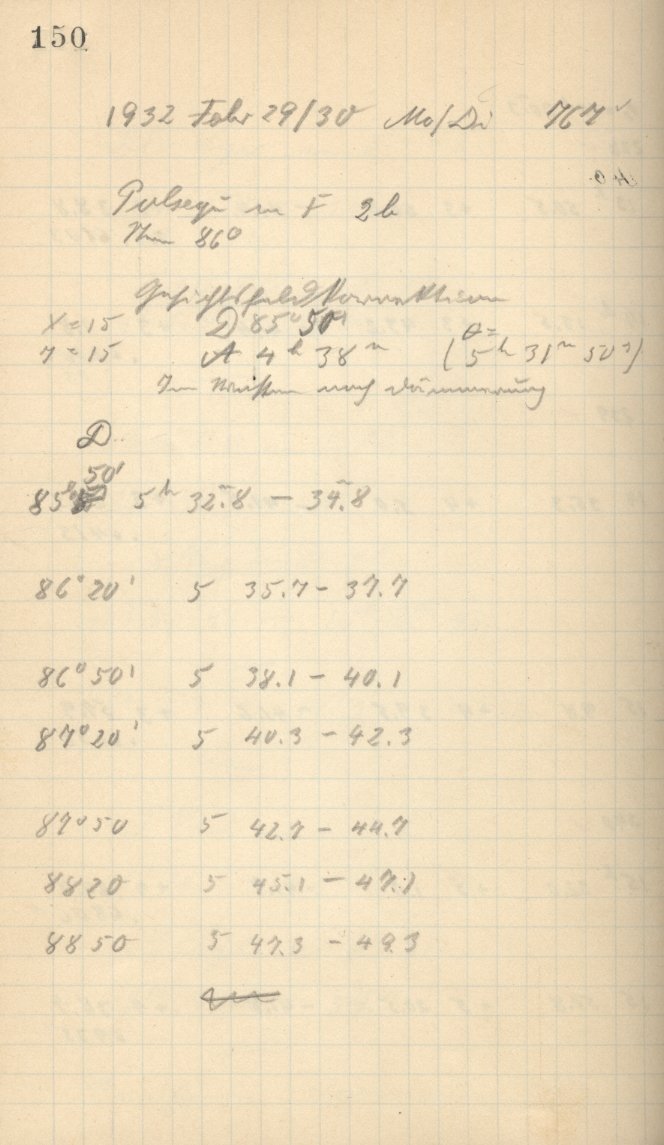 150
1932 Febr 29/30 Mo/Di 767
Polsequ in F 2b
86°
Gesichtsfeld Korrektion
X=15 D 85° 50'
Y=15 A 4h 38m (θ= 5h 31m 50s)
Im Westen noch Dämmerung
D
85° 50' 5h 32m.8 – 34m.8
86° 20' 5 35.7 – 37.7
86° 50' 5 38.1 – 40.1
87° 20' 5 40.3 – 42.3
87° 50 5 42.7 – 44.7
88 20 5 45.1 – 47.1
88 50 5 47.3 – 49.3